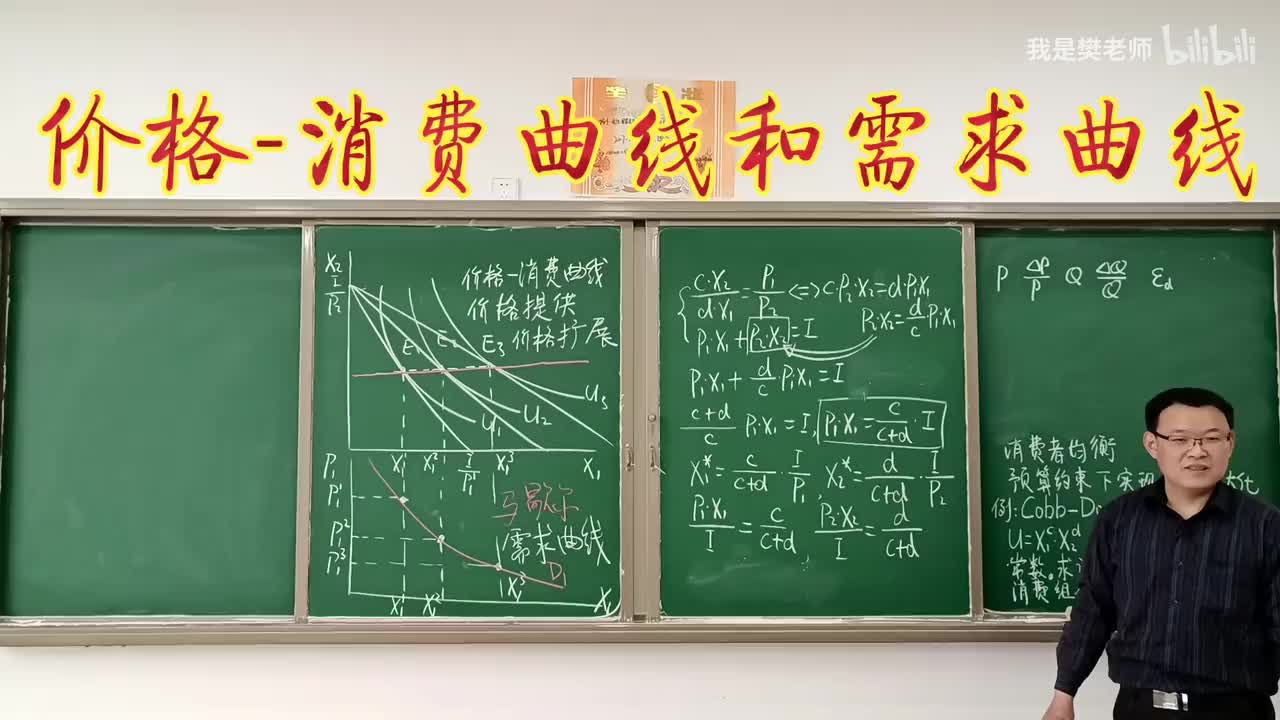 我是樊老师 bilibili
价格-消费曲线和需求曲线
X₂
I/P₂
价格-消费曲线
价格提供
价格扩展
E₁ E₂ E₃
U₁ U₂ U₃
X₁¹ X₁² I/P₁¹ X₁³ X₁
P₁
P₁¹
P₁²
P₁³
马歇尔
需求曲线
D₁
X₁¹ X₁² X₁³ X₁
c·X₂/d·X₁=P₁/P₂⇔c·P₂·X₂=d·P₁X₁
P₁·X₁+P₂·X₂=I
P₂·X₂=d/c·P₁·X₁
P₁·X₁+d/c P₁X₁=I
c+d/c P₁·X₁=I, P₁·X₁=c/c+d·I
X₁*=c/c+d·I/P₁, X₂*=d/c+d·I/P₂
P₁·X₁/I=c/c+d, P₂·X₂/I=d/c+d
P ΔP/P Q ΔQ/Q εd
消费者均衡
预算约束下实现
例:Cobb-D
U=X₁ᶜ·X₂ᵈ
常数。求
消费组